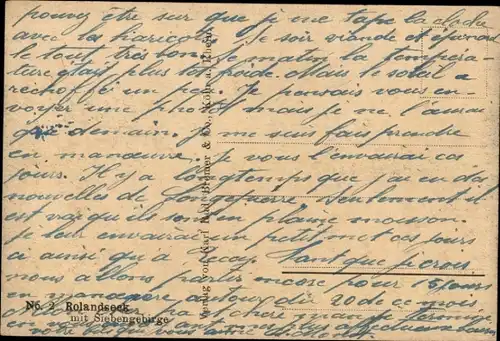 pouvez être sur que je me tape la cloche
avec les haricots. Ce soir viande et épinards
le tout très bon. Ce matin la tempéra-
ture était plus froide. Mais le soleil a
réchoffé un peu. Je pensais vous en-
voyer une photo mais je ne l'aurai
que demain. Je me suis fais prendre
en manœuvre. Je vous l'enverrai ces
jours. Il y a longtemps que j'ai eu des
nouvelles de Seulement il
est vrai qu'ils sont en pleine moisson.
je leur enverrai un petit mot ces jours
ci ainsi qu'a Tant que je crois
nous allons partir encore pour 15 jours
en autour du 20 de ce mois
vous plus affectueusement
votre qui vous aime
No. 2 Rolandseck
mit Siebengebirge
Verlag von Karl Rud. Bremer & Co., Köln a. Rhein